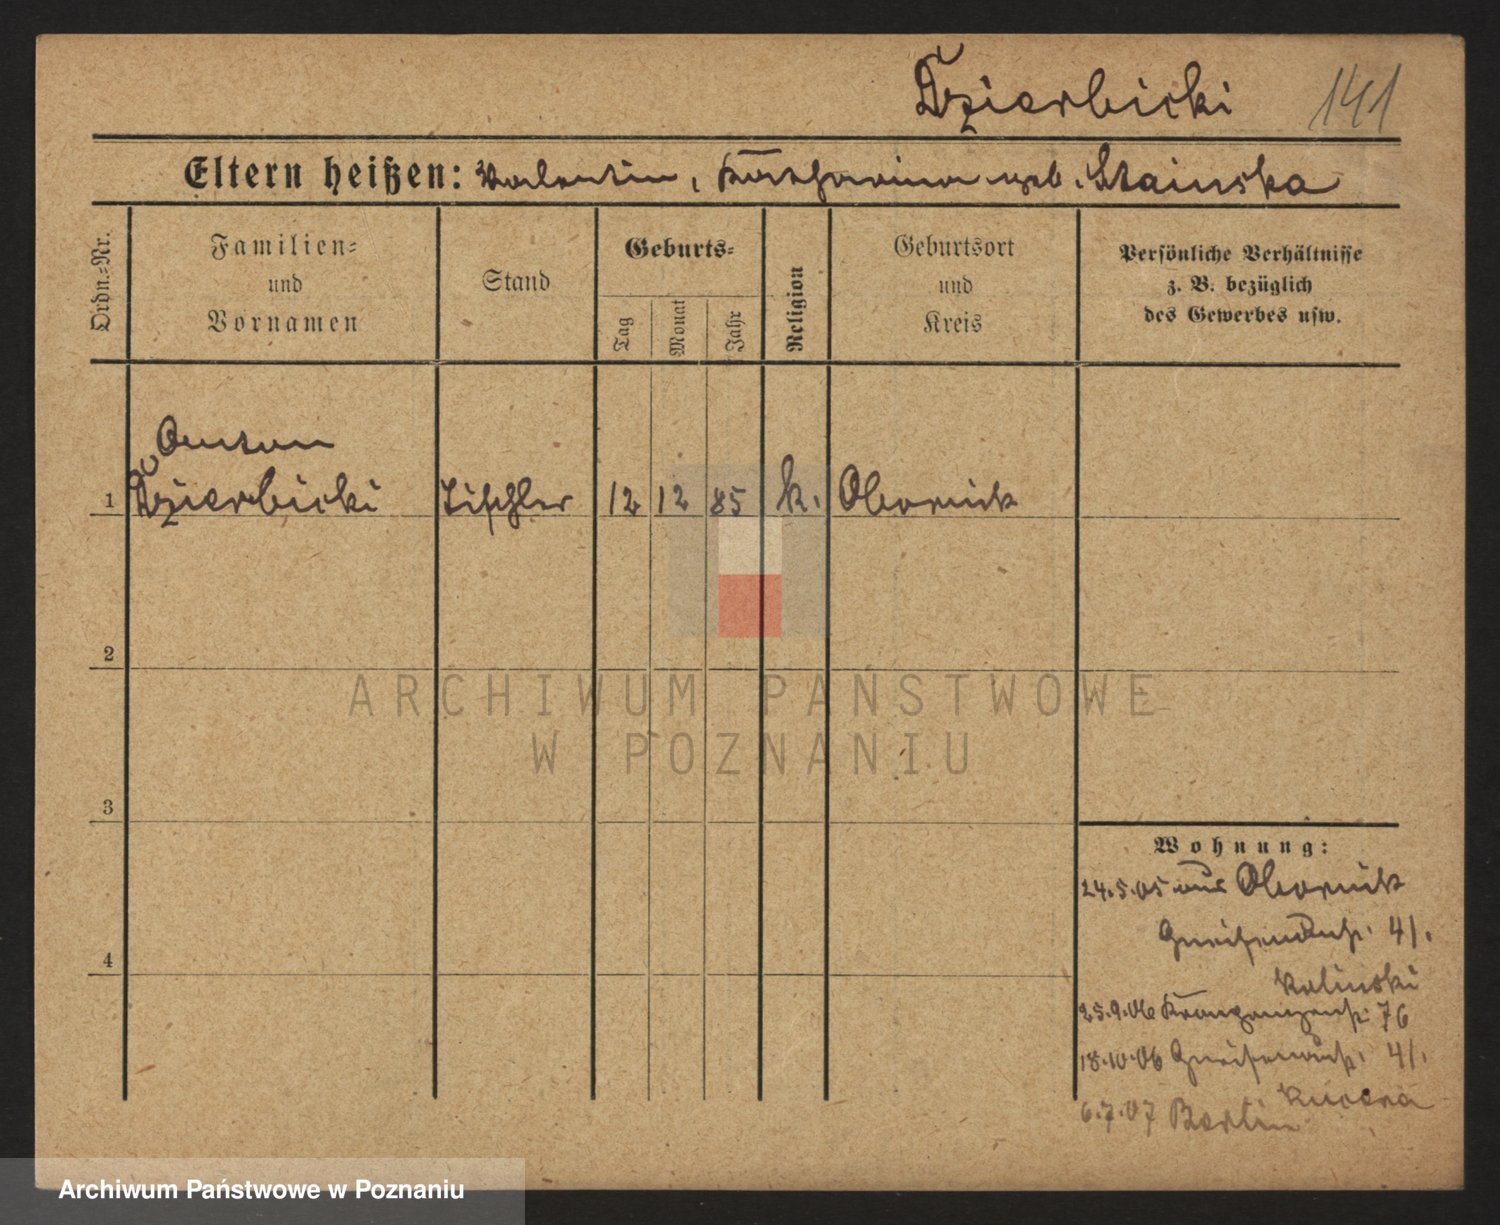 Dzierbicki 141
Eltern heißen: Valentin, Katharina geb. Stainska
Ordn.-Nr.
Familien-
und
Vornamen
Stand
Geburts-
Tag
Monat
Jahr
Religion
Geburtsort
und
Kreis
Persönliche Verhältnisse
z. B. bezüglich
des Gewerbes usw.
Anton
1 Dzierbicki Tischler 12 12 85 k. Obornik
2
ARCHIWUM PAŃSTWOWE
W POZNANIU
3
Wohnung:
24.5.05 aus Obornik
Gneisenaustr. 4/.
4
Kalinski
25.9.06 Kronprinzenstr. 76
18.10.06 Gneisenaustr. 4/.
Kucera
6.7.07 Berlin
Archiwum Państwowe w Poznaniu